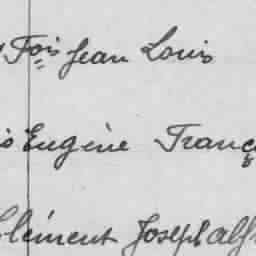 Fois Jean Louis
Eugène Franç
Clément Joseph Alf